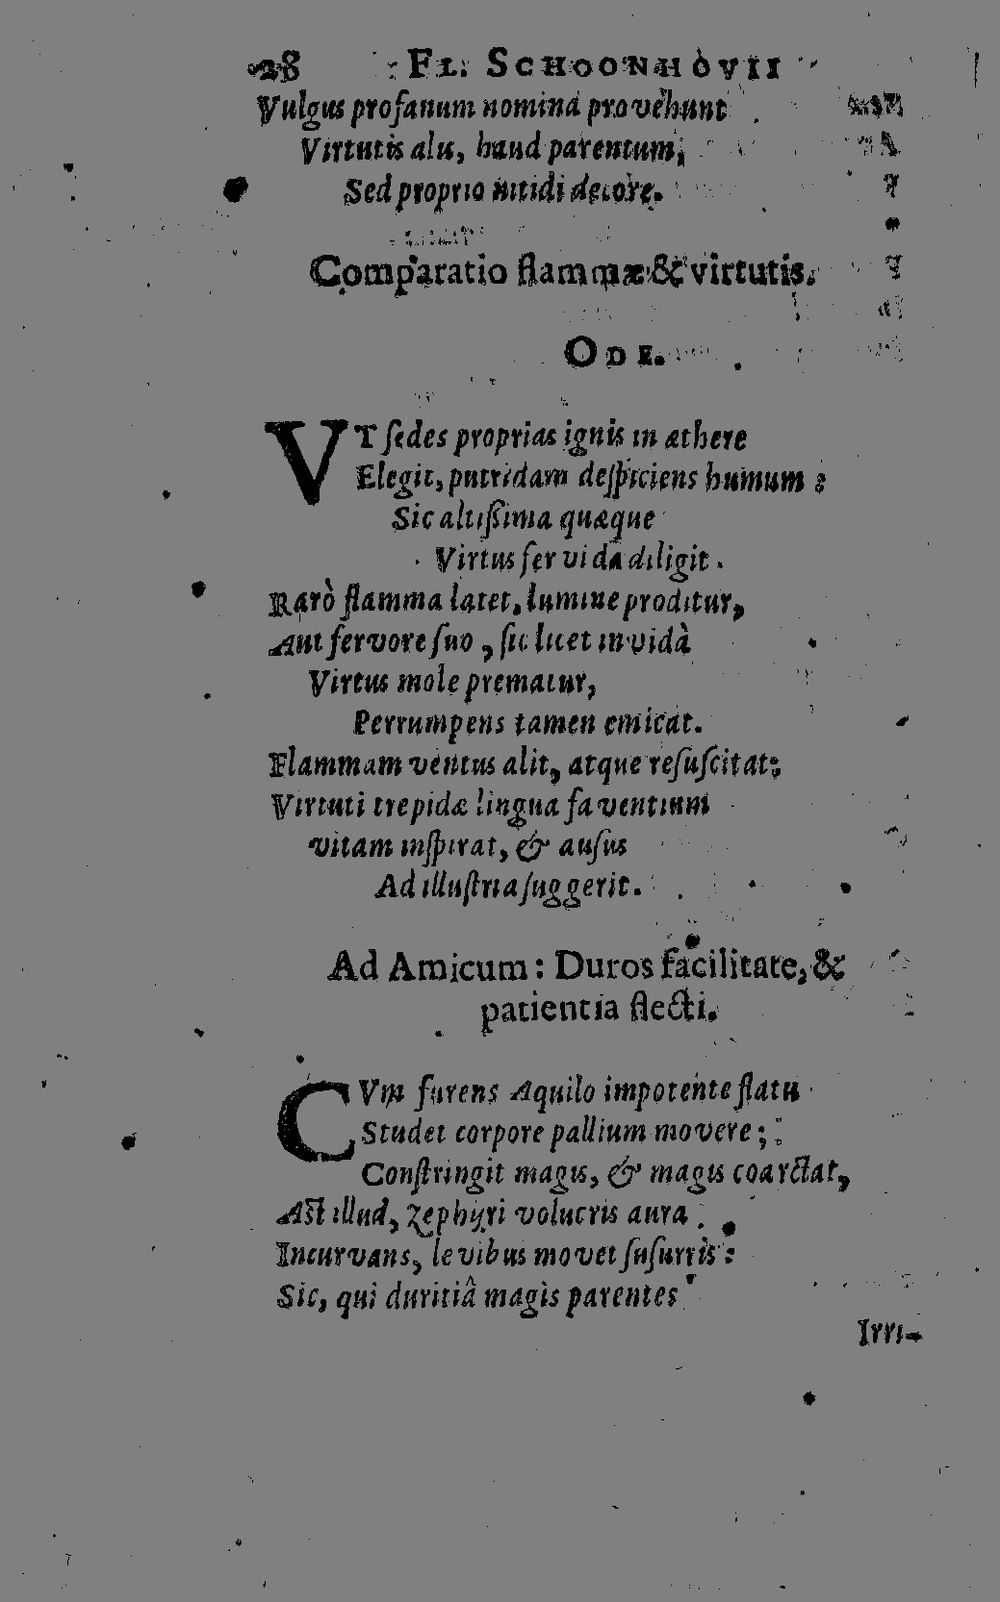 28 FL. SCHOONHOVII
Vulgus profanum nomina provehunt
Virtutis alis, haud parentum,
Sed proprio nitidi decore.
Comparatio flammæ & virtutis.
ODE.
VT ſedes proprias ignis in æthere
Elegit, putridam deſpiciens humum:
Sic altiſſima quæque
Virtus fervida diligit.
Rarò flamma latet, lumine proditur,
Aut fervore ſuo, ſic licet invidâ
Virtus mole prematur,
Perrumpens tamen emicat.
Flammam ventus alit, atque reſuſcitat;
Virtuti trepidæ lingua faventium
vitam inſpirat, & auſus
Ad illuſtria ſuggerit.
Ad Amicum: Duros facilitate, &
patientia flecti.
CVm furens Aquilo impotente flatu
Studet corpore pallium movere;
Conſtringit magis, & magis coarctat,
Aſt illud, zephyri volucris aura
Incurvans, levibus movet ſuſurris:
Sic, qui duritiâ magis parentes
Irri-